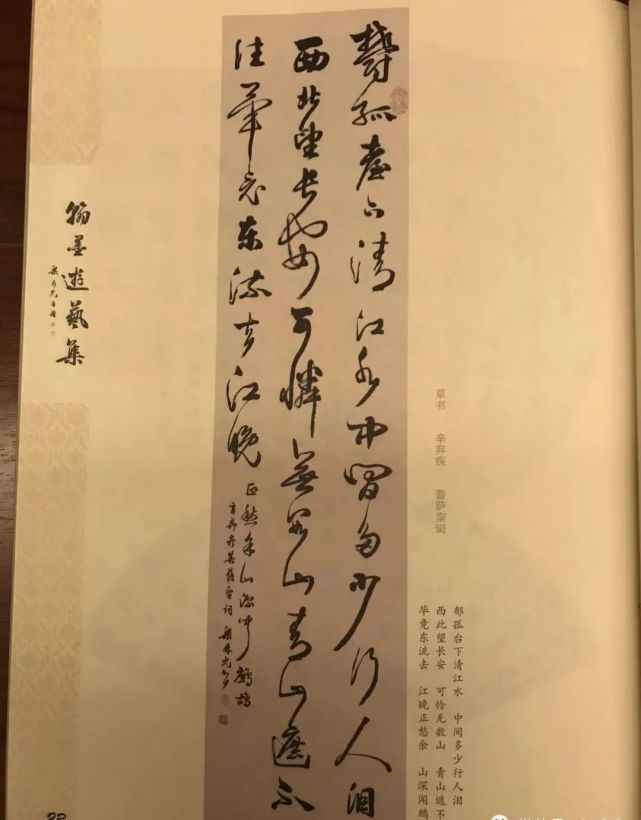 鬱孤臺下清江水中間多少行人泪
西北望長安可憐無數山青山遮不
住畢竟東流去江晚
正愁余山深聞鷓鴣
辛棄疾菩薩蛮詞
草书 辛弃疾 菩萨蛮词
郁孤台下清江水 中间多少行人泪
西此望长安 可怜无数山 青山遮不
毕竟东流去 江晚正愁余 山深闻鹧
翰墨遊藝集
22